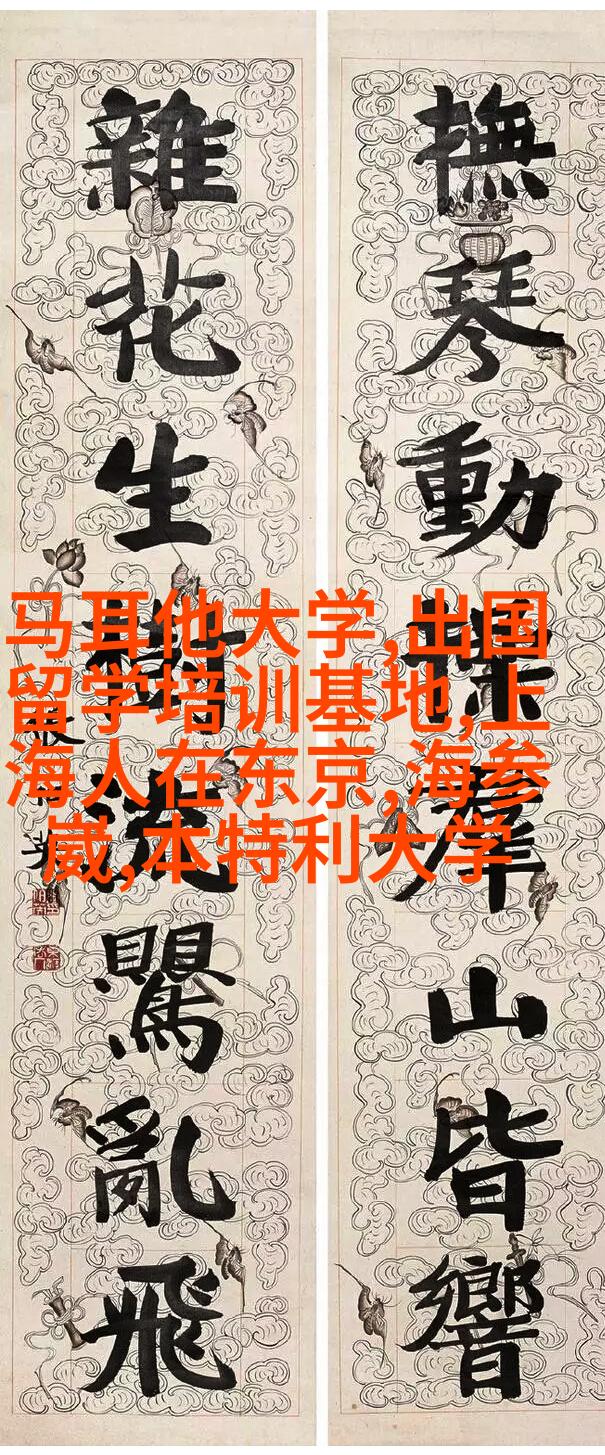 撫琴動操羣山皆響
雜花生樹浅鶯亂飛
马耳他大学,出国
留学培训基地,上
海人在东京,海参
崴,本特利大学